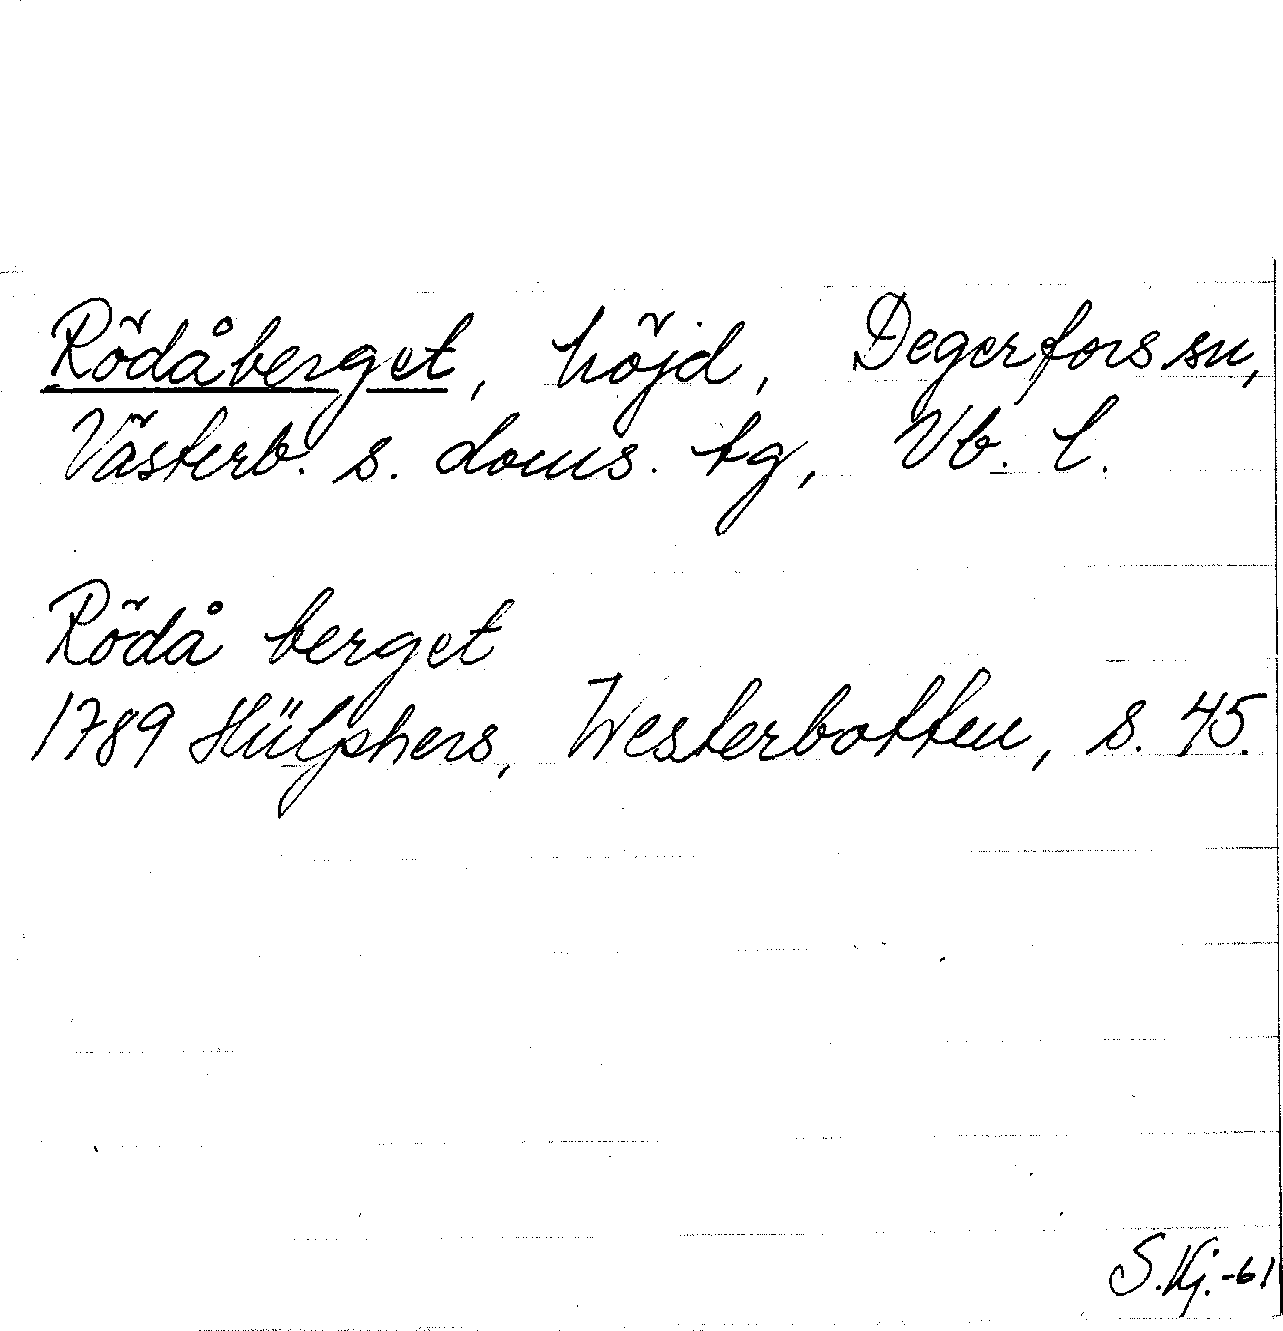 Rödåberget, höjd, Degerfors sn,
Västerb. s. doms. tg, Vb. l.
Rödå berget
1789 Hülphers, Westerbotten, s. 45.
S.Kj.-61